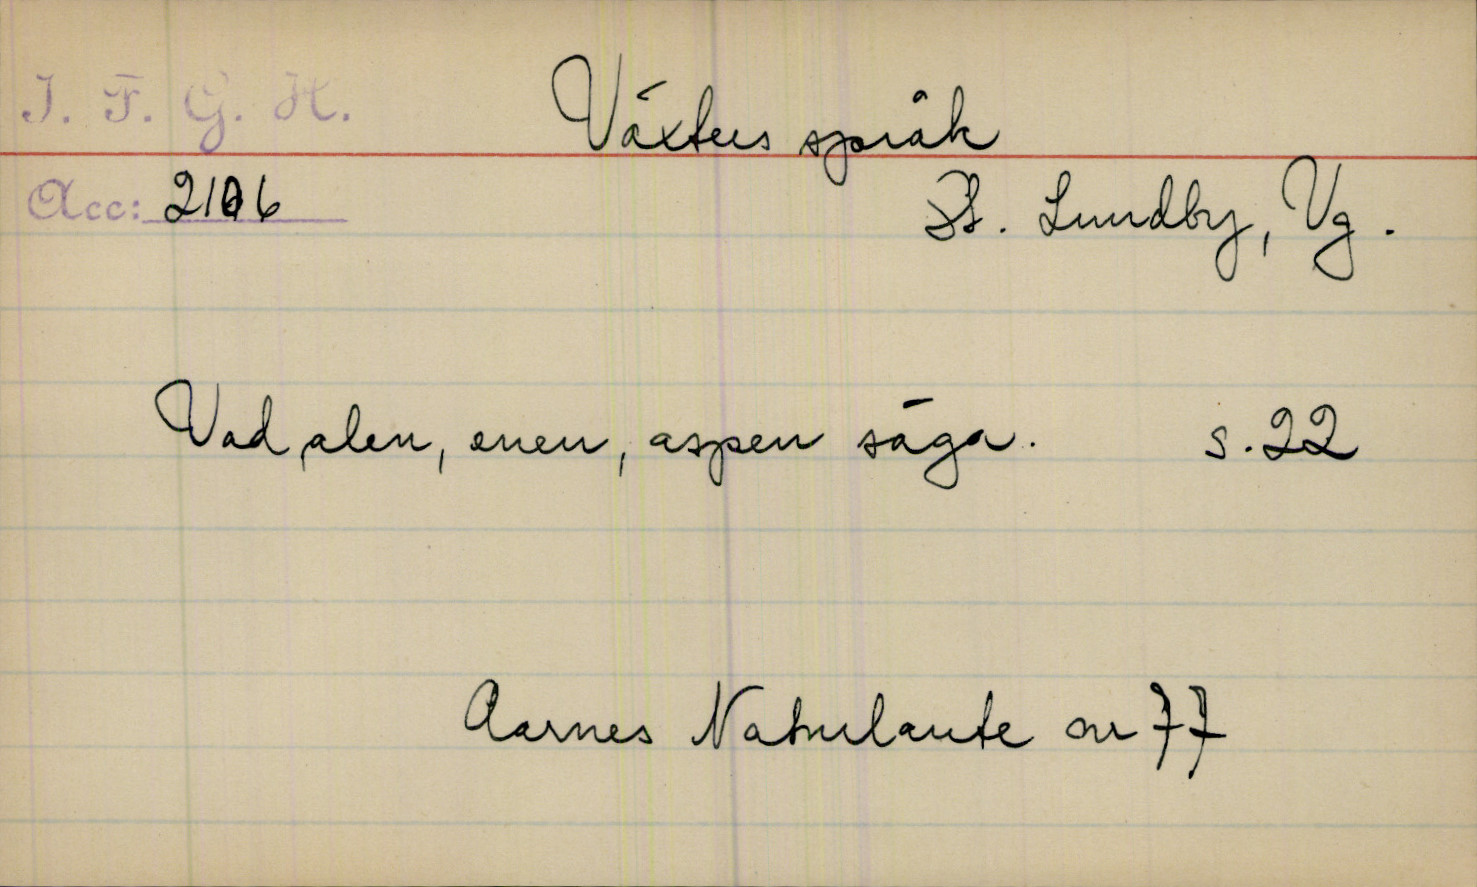 I. F. G. H.
Växters språk
Acc: 2106
St. Lundby, Vg.
Vad alen, enen, aspen säga. s. 22
Aarnes Naturlaute nr 77